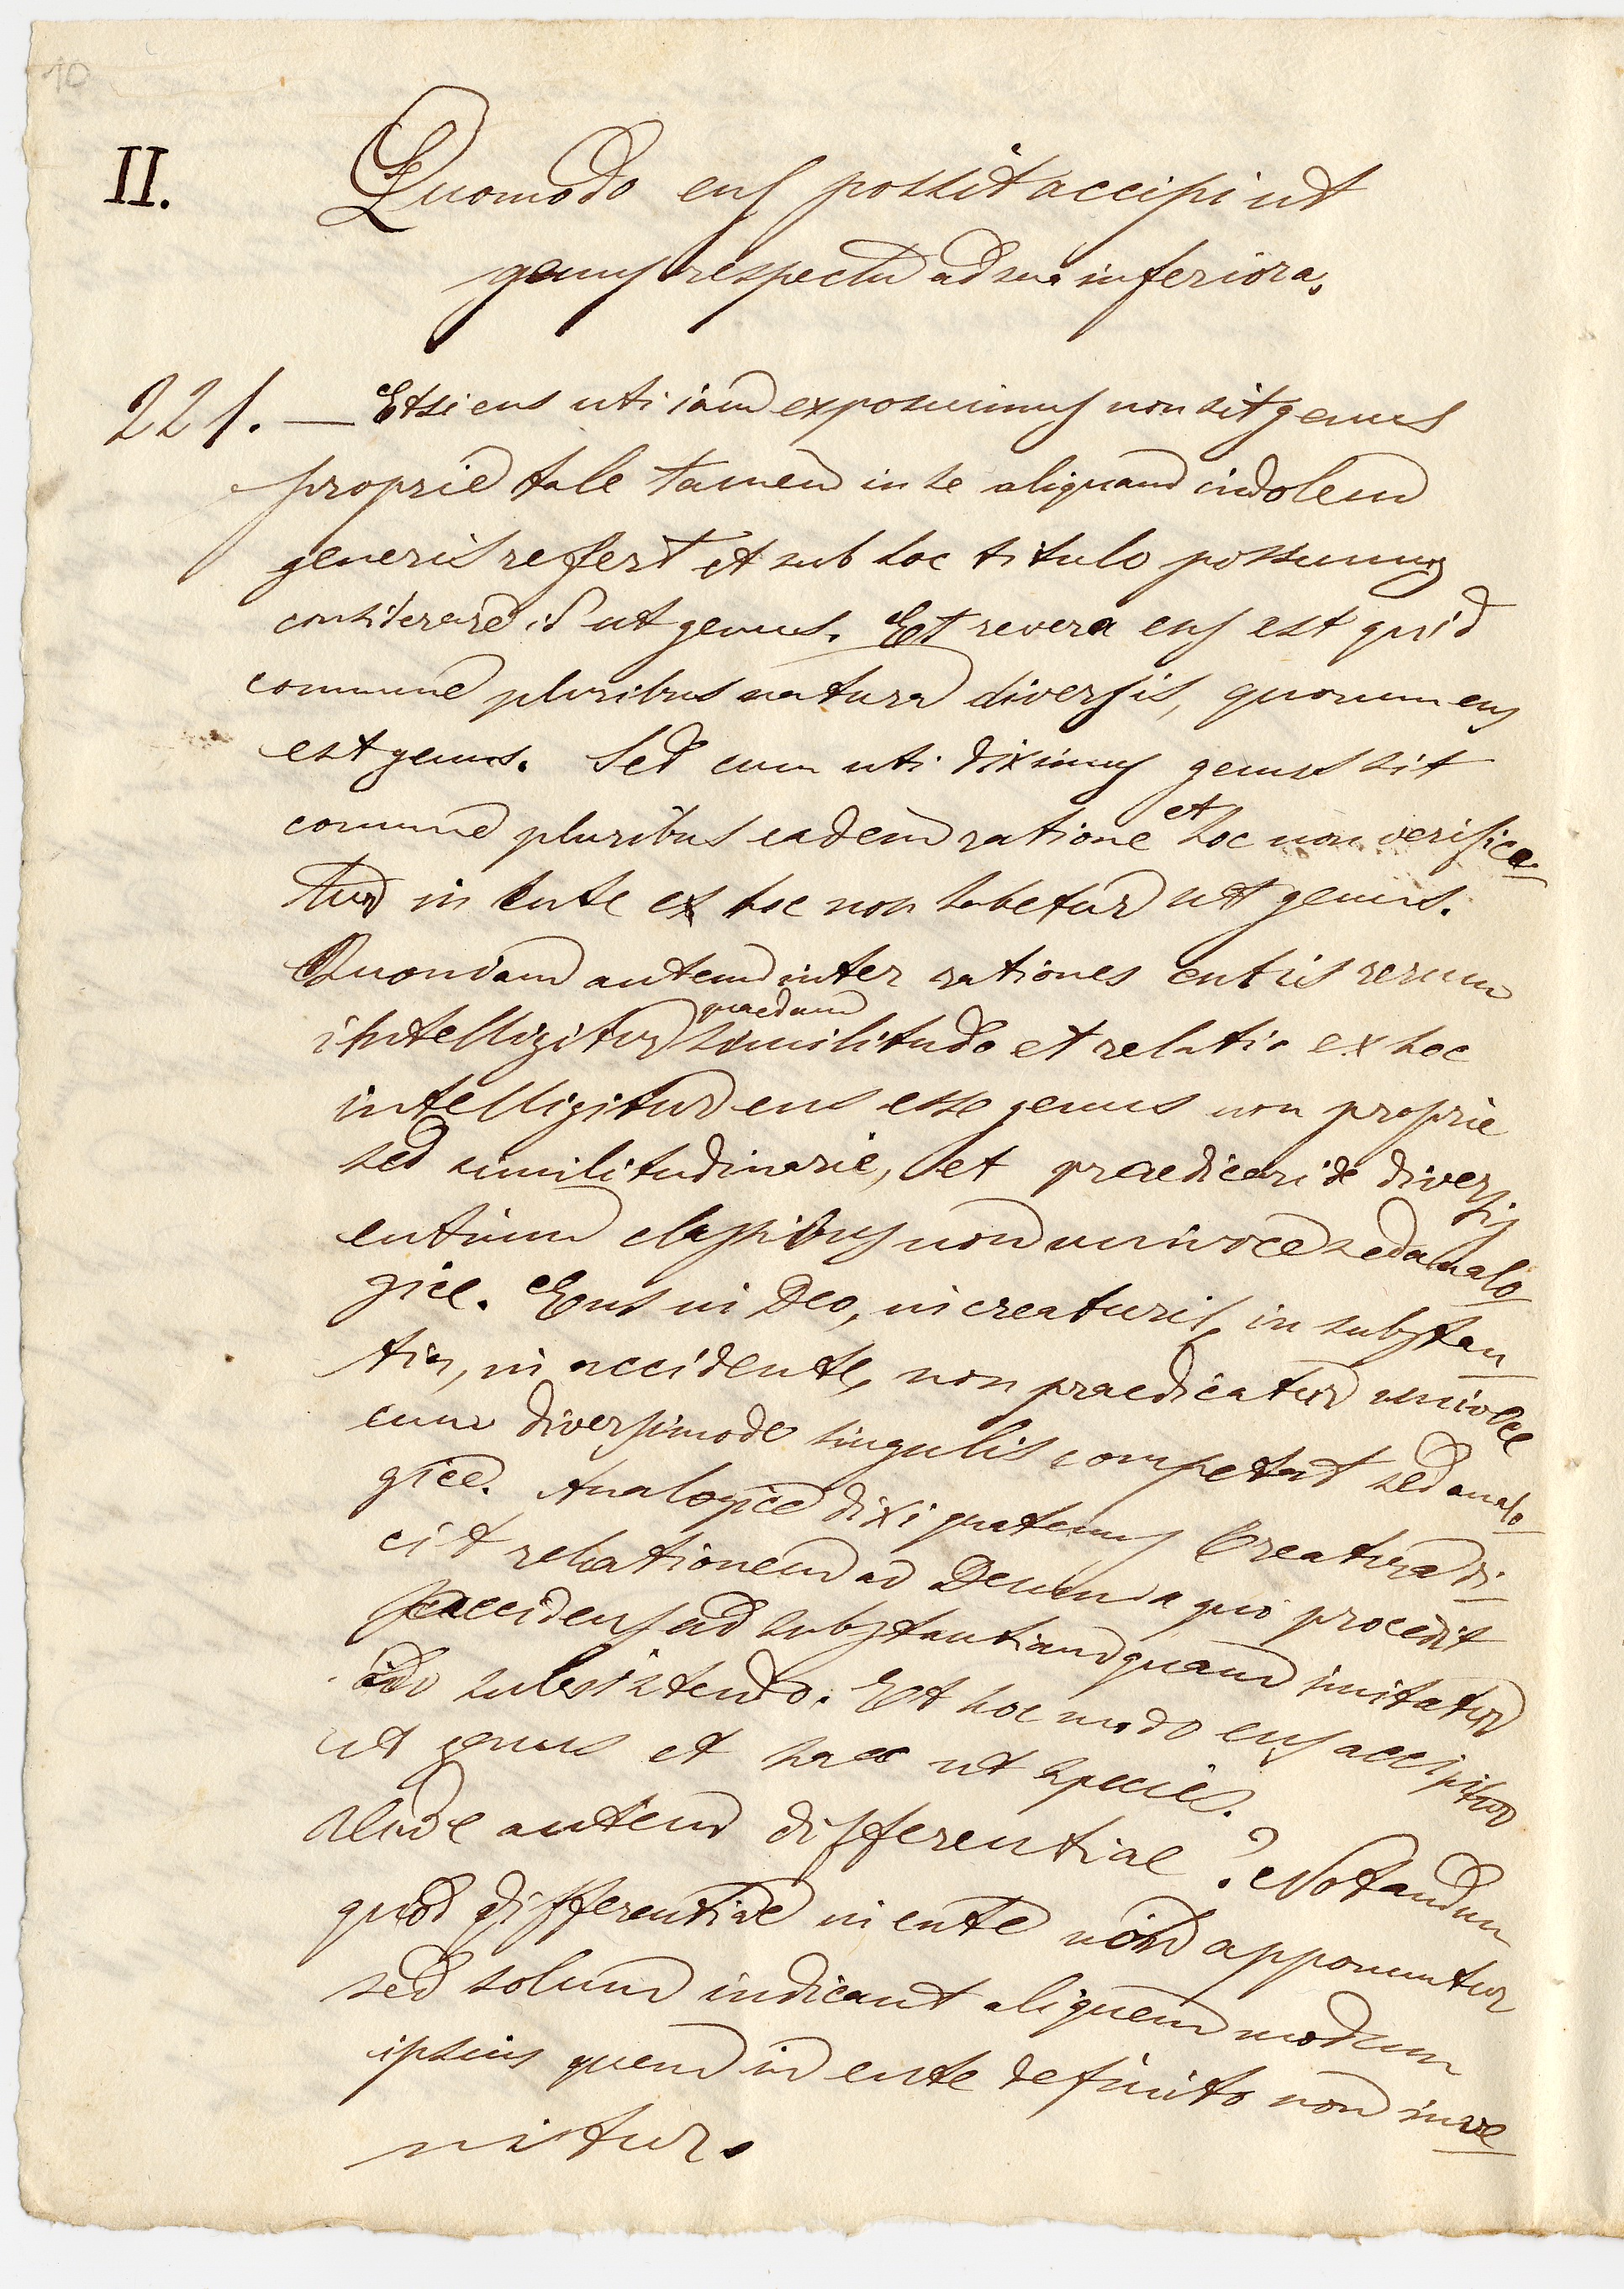 10
II.
Quomodo ens possit accipi ut
genus respectu ad sua inferiora.
221. — Etsi ens uti iam exposuimus non sit genus
proprie tale tamen in se aliquam indolem
generis refert et sub hoc titulo possumus
considerare id ut genus. Et revera ens est quid
commune pluribus natura diversis, quorum ens
est genus. Sed cum uti diximus genus sit
comune pluribus eadem ratione et hoc non verifica
tur in ente ex hoc non habetur ut genus.
Quoniam autem inter rationes entis rerum
intelligitur quaedam similitudo et relatio ex hoc
intelligitur ens esse genus non proprie
sed similitudinarie, et praedicari de diversis
entium classibus non univoce sed analo
gice. Ens in Deo, in creaturis, in substan
tia, in accidente, non praedicatur univoce
cum diversimode singulis competat sed analo
gice. Analogice dixi quatenus Creatura di
cit relationem ad Deum a quo procedit
accidens ad substantiam quam imitatur
subsistendo. Et hoc modo ens accipitur
ut genus et haec ut species.
Unde autem differentiae? Notandum
quod differentiae in ente non apponuntur
sed solum indicant aliquem modum
ipsius quem in ente definito non inve
nitur.